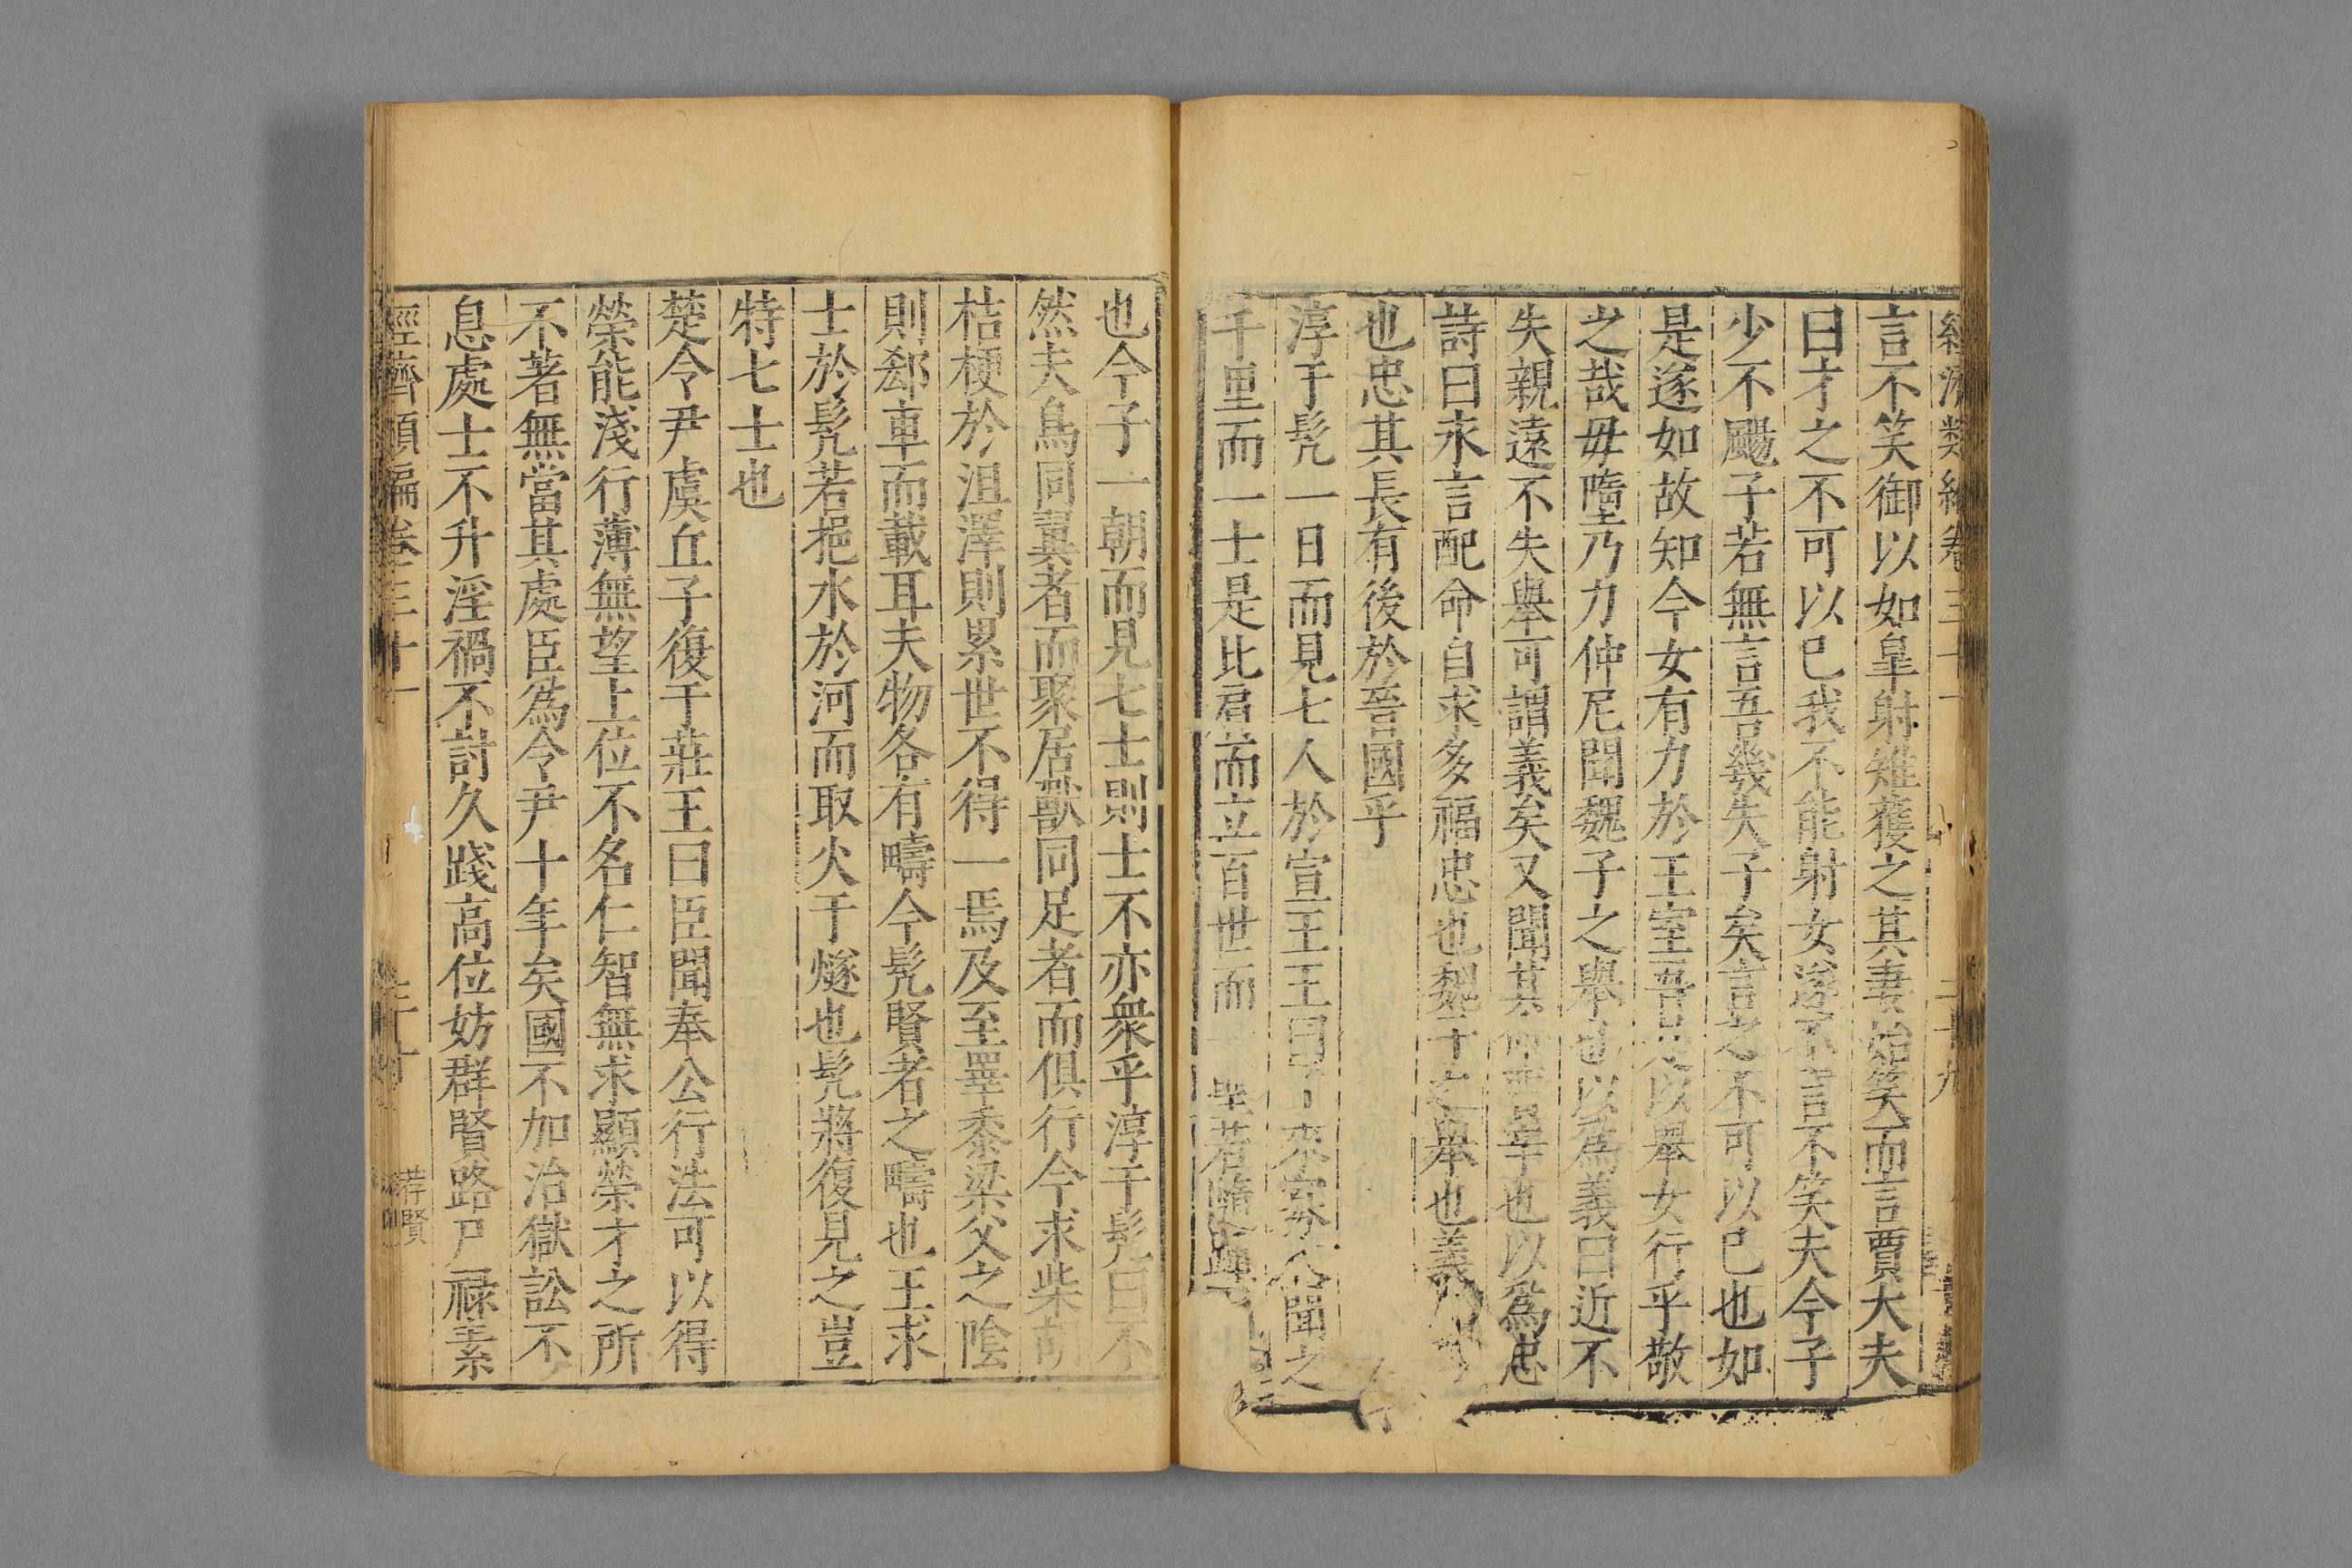 經濟類編卷三十一 二十九
言不笑御以如皐射雉獲之其妻始笑而言賈大夫
曰才之不可以已我不能射女遂不言不笑夫今子
少不颺子若無言吾幾失子矣言之不可以已也如
是遂如故知今女有力於王室吾是以舉女行乎敬
之哉毋墮乃力仲尼聞魏子之舉也以爲義曰近不
失親遠不失舉可謂義矣又聞其命賈辛也以爲忠
詩曰永言配命自求多福忠也魏子之舉也義
也忠其長有後於晉國乎
淳于髡一日而見七人於宣王王曰子來寡人聞之
千里而一士是比肩而立百世而一聖若隨踵
也今子一朝而見七士則士不亦衆乎淳于髡曰不
然夫鳥同翼者而聚居獸同足者而俱行今求柴胡
桔梗於沮澤則累世不得一焉及至睪黍梁父之陰
則郄車而載耳夫物各有疇今髡賢者之疇也王求
士於髡若挹水於河而取火于燧也髡將復見之豈
特七士也
楚令尹虞丘子復于莊王曰臣聞奉公行法可以得
榮能淺行薄無望上位不名仁智無求顯榮才之所
不著無當其處臣爲令尹十年矣國不加治獄訟不
息處士不升淫禍不討久踐高位妨群賢路尸祿素
經濟類編卷三十一 三十 荐賢